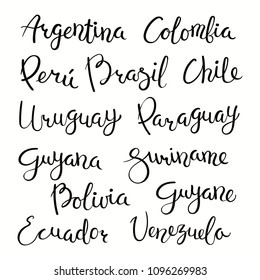 Argentina Colombia
Perú Brasil Chile
Uruguay Paraguay
Guyana Suriname
Bolivia Guyane
Ecuador Venezuela
shutterstock.com · 1096269983